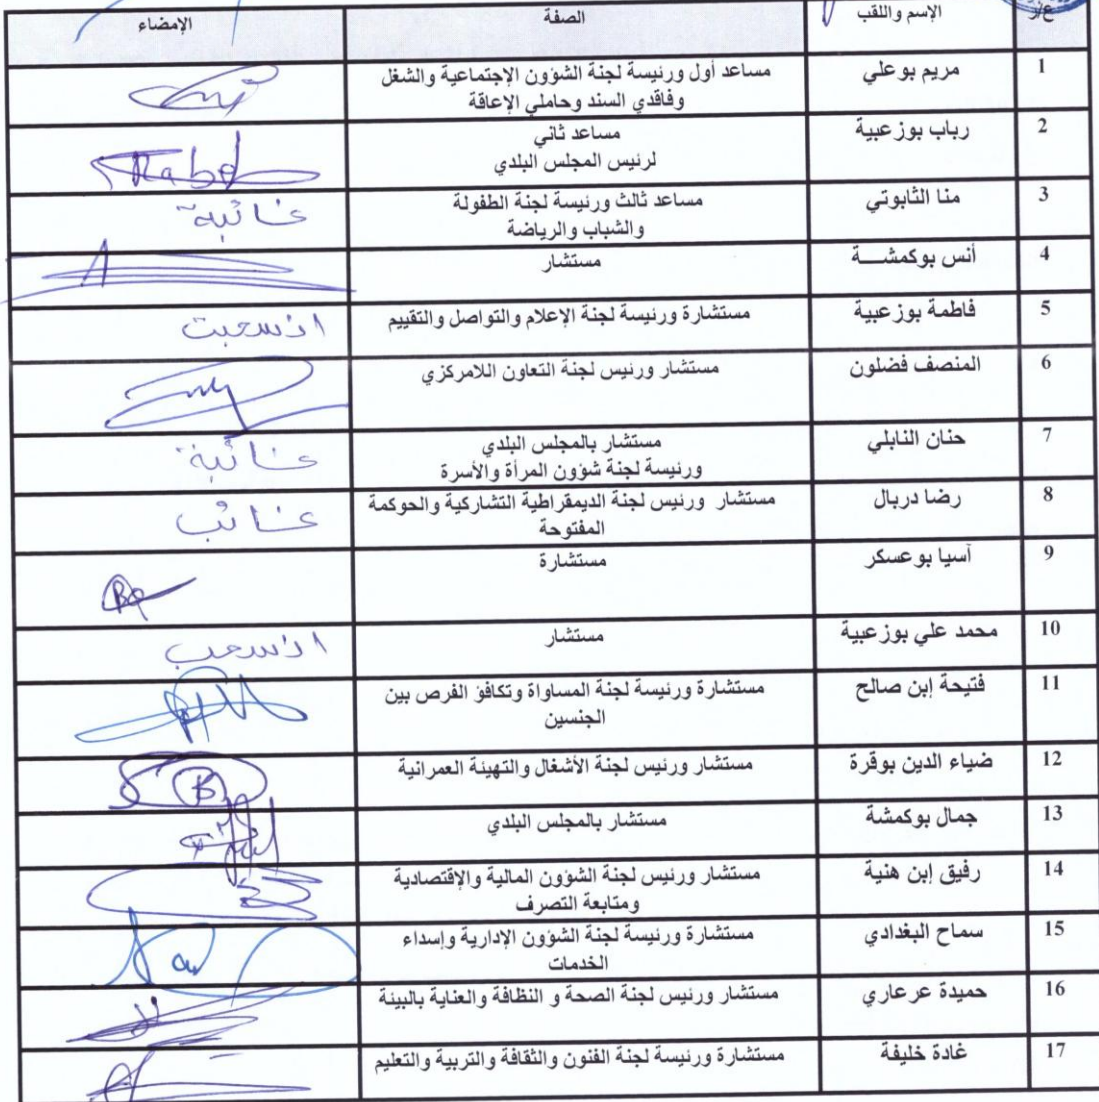 ع/ر الإسم واللقب الصفة الإمضاء
1 مريم بوعلي مساعد أول ورئيسة لجنة الشؤون الإجتماعية والشغل
وفاقدي السند وحاملي الإعاقة
2 رباب بوزعبية مساعد ثاني
لرئيس المجلس البلدي
Rabeb
3 منا الثابوتي مساعد ثالث ورئيسة لجنة الطفولة
والشباب والرياضة
غائبة
4 أنس بوكمشـــة مستشار
5 فاطمة بوزعبية مستشارة ورئيسة لجنة الإعلام والتواصل والتقييم انسحبت
6 المنصف فضلون مستشار ورئيس لجنة التعاون اللامركزي
7 حنان النابلي مستشار بالمجلس البلدي
ورئيسة لجنة شؤون المرأة والأسرة
غائبة
8 رضا دربال مستشار ورئيس لجنة الديمقراطية التشاركية والحوكمة
المفتوحة
غائب
9 آسيا بوعسكر مستشارة
10 محمد علي بوزعبية مستشار انسحب
11 فتيحة إبن صالح مستشارة ورئيسة لجنة المساواة وتكافؤ الفرص بين
الجنسين
12 ضياء الدين بوقرة مستشار ورئيس لجنة الأشغال والتهيئة العمرانية
13 جمال بوكمشة مستشار بالمجلس البلدي
14 رفيق إبن هنية مستشار ورئيس لجنة الشؤون المالية والإقتصادية
ومتابعة التصرف
15 سماح البغدادي مستشارة ورئيسة لجنة الشؤون الإدارية وإسداء
الخدمات
16 حميدة عرعاري مستشار ورئيس لجنة الصحة و النظافة والعناية بالبيئة
17 غادة خليفة مستشارة ورئيسة لجنة الفنون والثقافة والتربية والتعليم